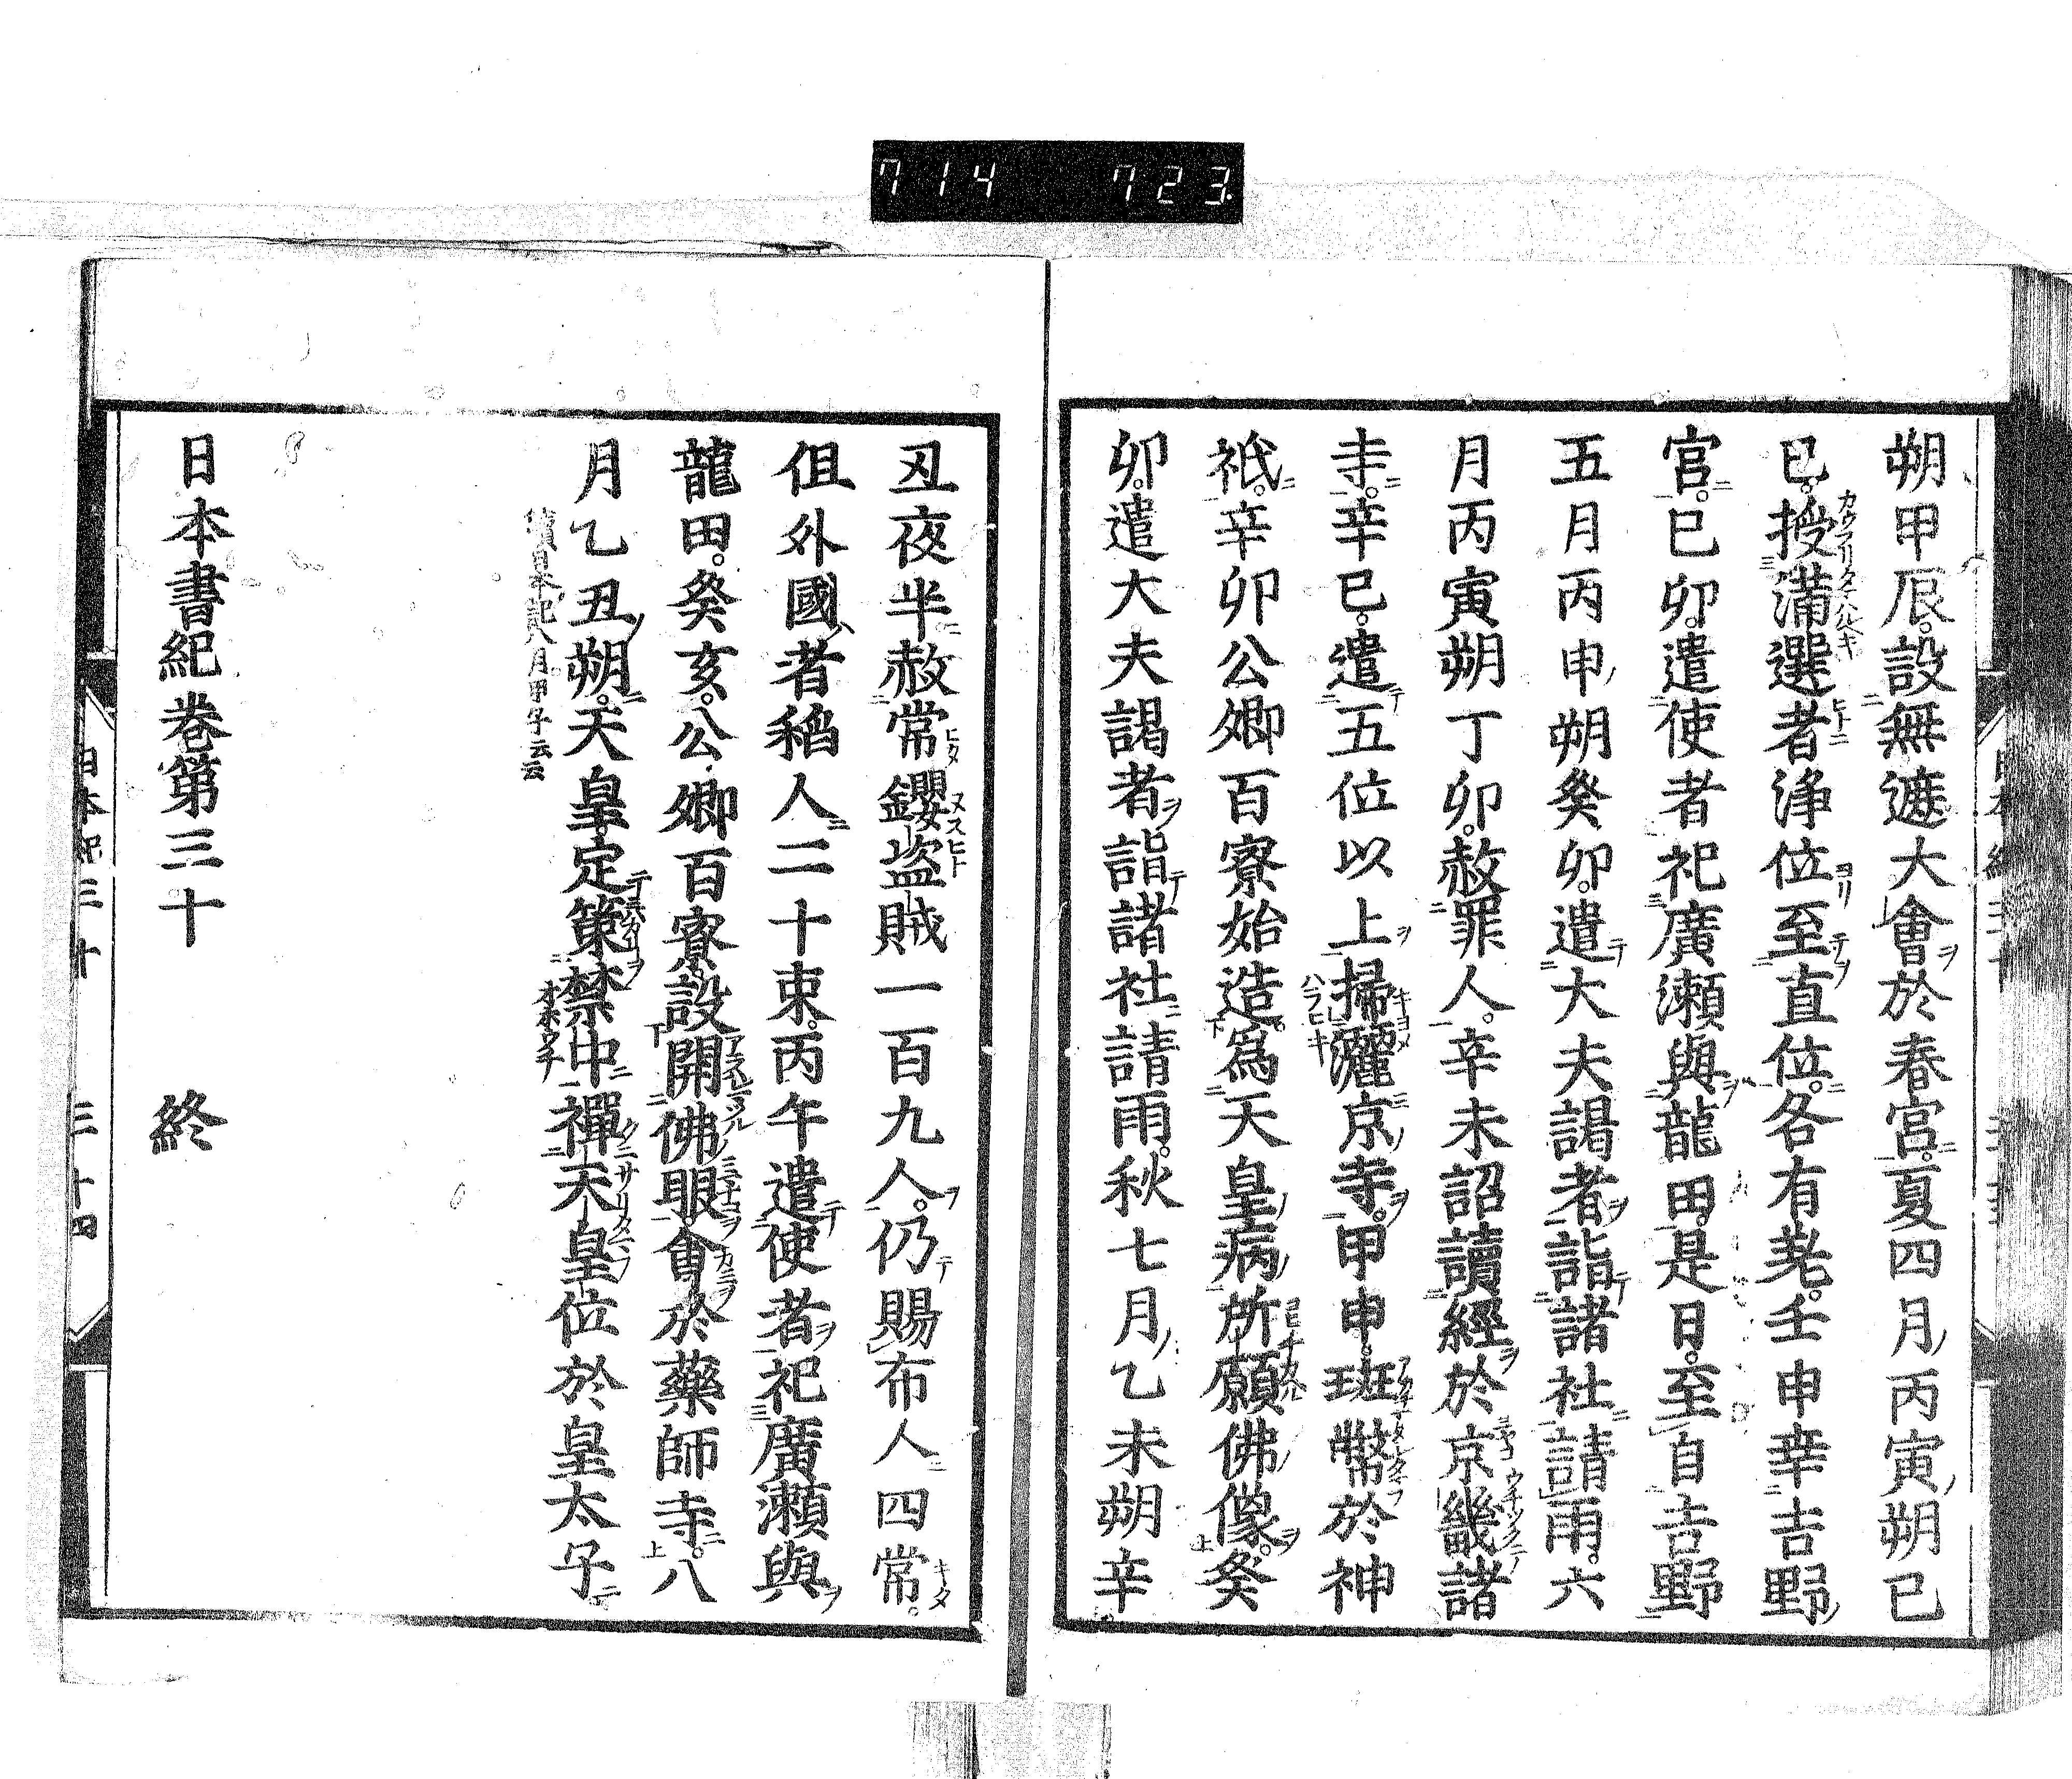 7 14 723.
朔甲辰。設無遮大會於春宮。夏四月丙寅朔巳
巳。授滿選者淨位至直位。各有差。壬申幸吉野
宮。巳卯。遣使者祀廣瀬與龍田。是日。至自吉野
五月丙申朔癸卯。遣大夫謁者詣諸社請雨。六
月丙寅朔丁卯。赦罪人。辛未詔讀經於京畿諸
寺。辛巳。遣五位以上掃灑京寺。甲申。班幣於神
祇。辛卯公卿百寮始造。爲天皇病所願佛像。癸
卯。遣大夫謁者詣諸社請雨。秋七月乙未朔辛
丑夜半赦常䥳盗賊一百九人。仍賜布人四常。
伹外國者稻人二十束。丙午遣使者祀廣瀬與
龍田。癸亥。公卿百寮。設開佛眼會於藥師寺。八
月乙丑朔。天皇定策禁中禪天皇位於皇太子
續日本記八月甲子云云
日本書紀卷第三十 終
日本紀三十 三十四